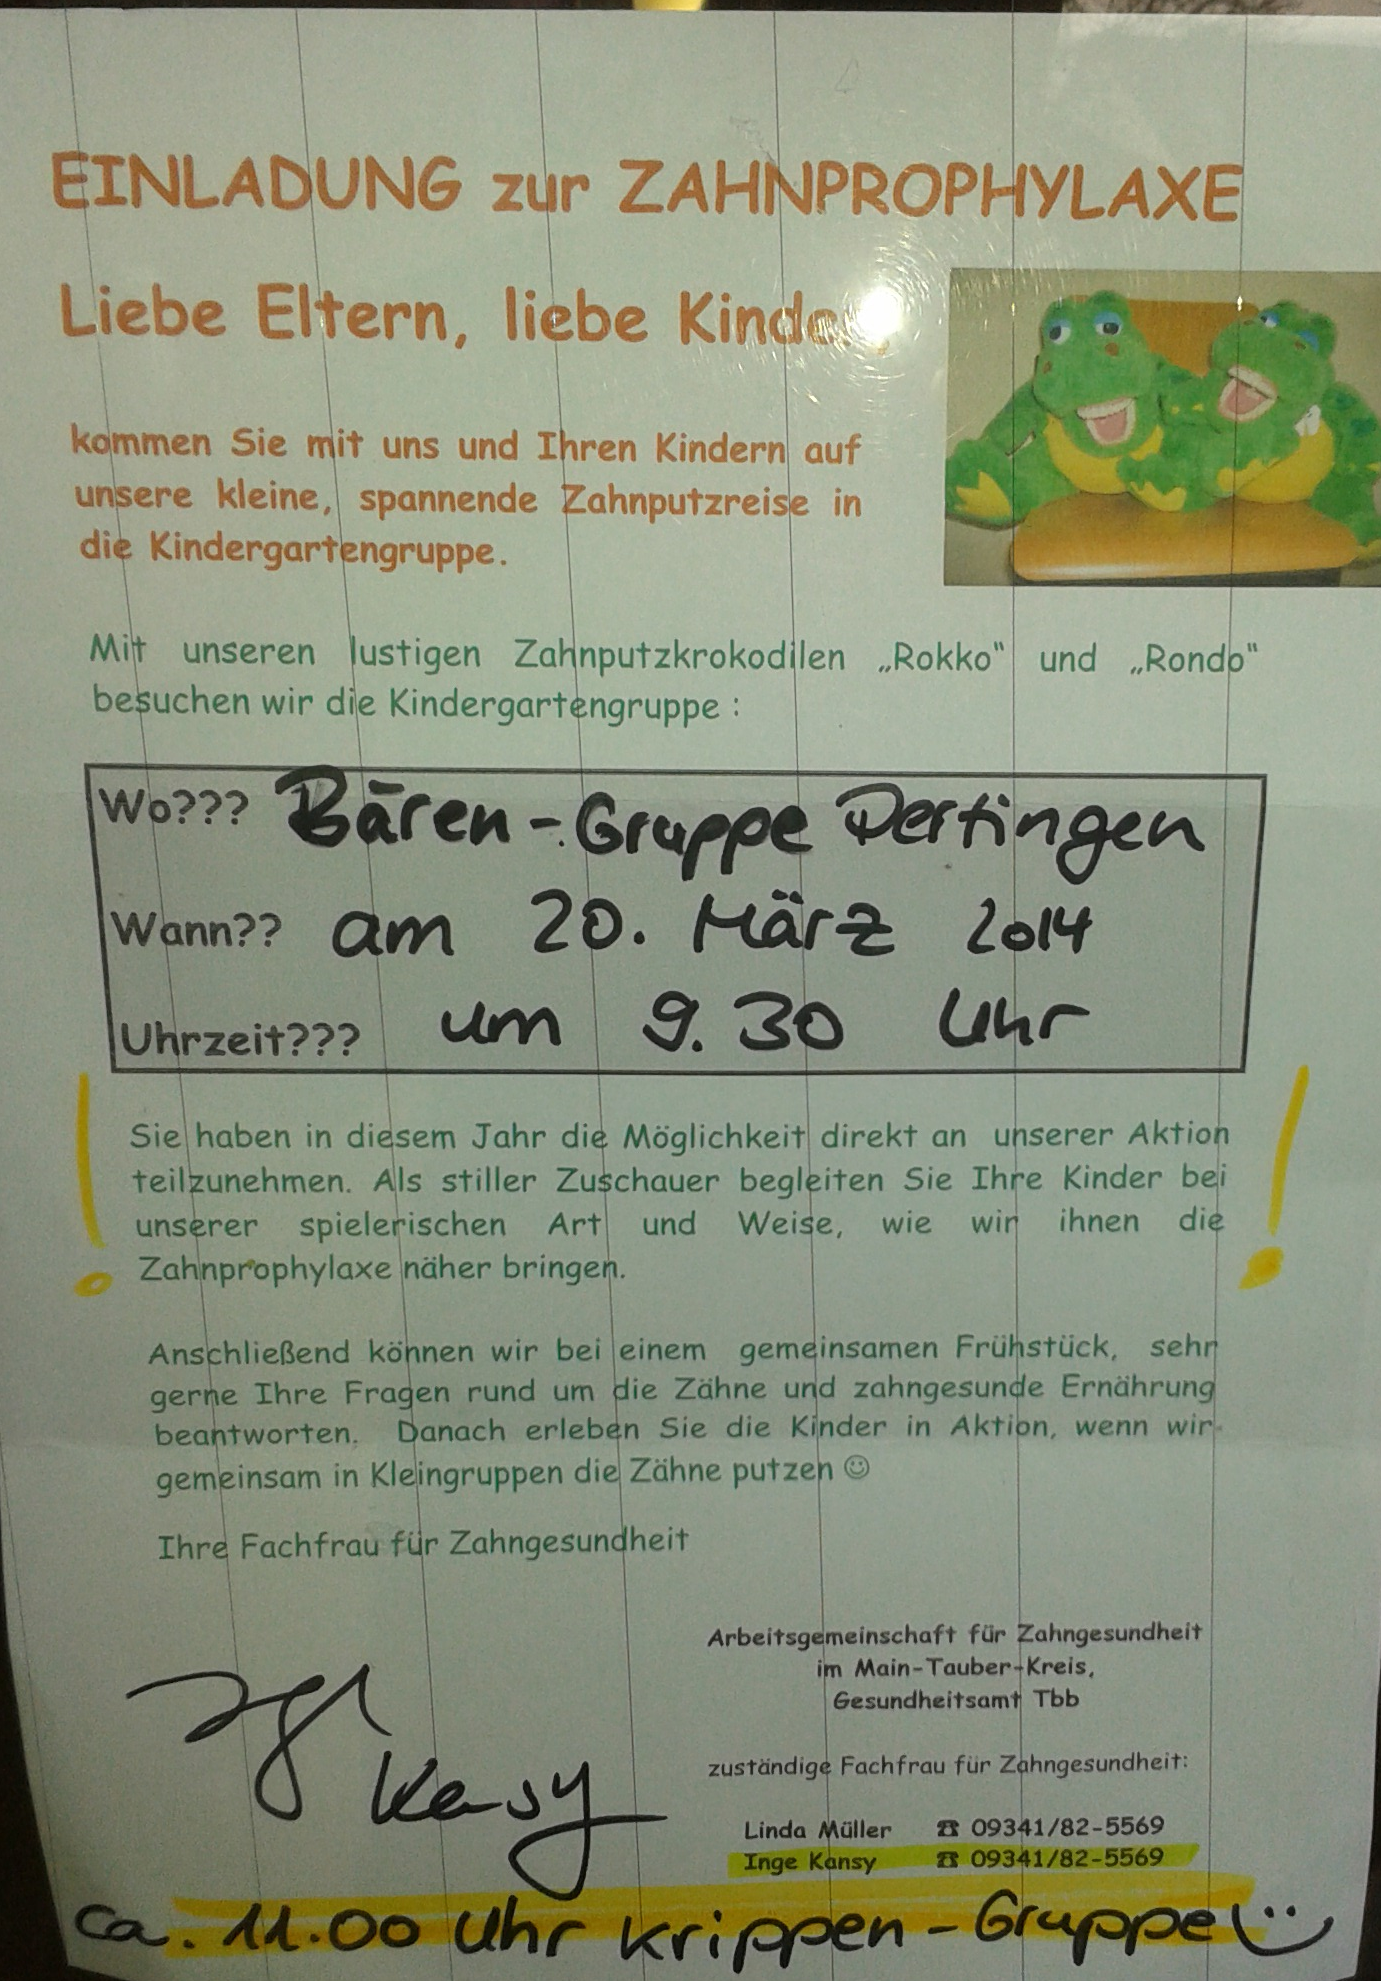 EINLADUNG zur ZAHNPROPHYLAXE
Liebe Eltern, liebe Kinder,
kommen Sie mit uns und Ihren Kindern auf
unsere kleine, spannende Zahnputzreise in
die Kindergartengruppe.
Mit unseren lustigen Zahnputzkrokodilen „Rokko“ und „Rondo“
besuchen wir die Kindergartengruppe :
Wo??? Bären-Gruppe Dertingen
Wann?? am 20. März 2014
Uhrzeit??? um 9.30 Uhr
Sie haben in diesem Jahr die Möglichkeit direkt an unserer Aktion
teilzunehmen. Als stiller Zuschauer begleiten Sie Ihre Kinder bei
unserer spielerischen Art und Weise, wie wir ihnen die
Zahnprophylaxe näher bringen.
Anschließend können wir bei einem gemeinsamen Frühstück, sehr
gerne Ihre Fragen rund um die Zähne und zahngesunde Ernährung
beantworten. Danach erleben Sie die Kinder in Aktion, wenn wir
gemeinsam in Kleingruppen die Zähne putzen ☺
Ihre Fachfrau für Zahngesundheit
Arbeitsgemeinschaft für Zahngesundheit
im Main-Tauber-Kreis,
Gesundheitsamt Tbb
Kansy
zuständige Fachfrau für Zahngesundheit:
Linda Müller ☎ 09341/82-5569
Inge Kansy ☎ 09341/82-5569
ca. 11.00 Uhr Krippen-Gruppe